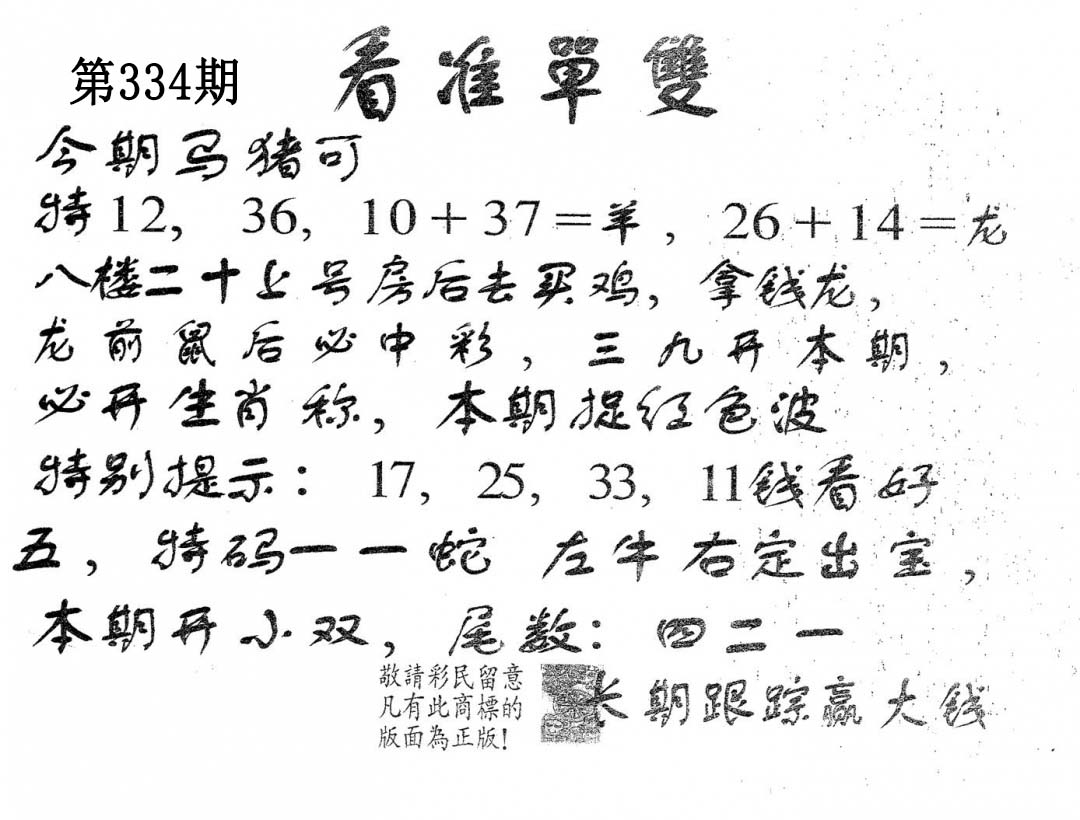 第334期
看准單雙
今期马猪可
特12, 36, 10+37=羊, 26+14=龙
八楼二十上号房后去买鸡, 拿钱龙,
龙前鼠后必中彩, 三九开本期,
必开生肖称, 本期捉红色波
特别提示: 17, 25, 33, 11钱看好
五, 特码一一蛇 左牛右定出宝,
本期开小双, 尾数: 四二一
敬請彩民留意
凡有此商標的
版面為正版!
长期跟踪赢大钱